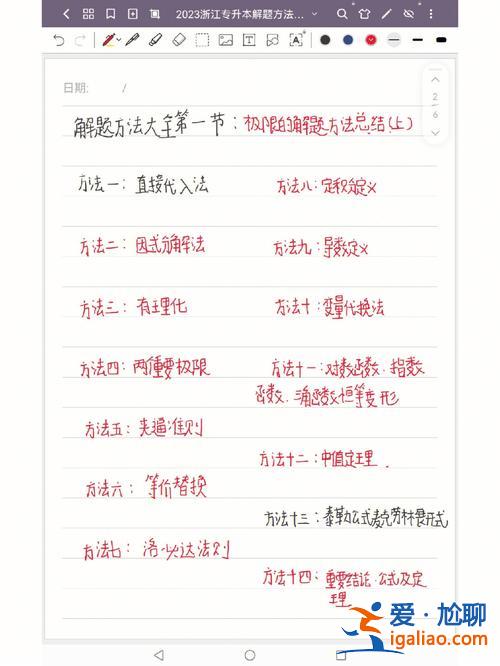 2023浙江专升本解题方法...
日期: /
2
6
解题方法大全第一节：极限的解题方法总结(上)
方法一：直接代入法
方法二：因式分解法
方法三：有理化
方法四：两个重要极限
方法五：夹逼准则
方法六：等价替换
方法七：洛必达法则
方法八：定积分定义
方法九：导数定义
方法十：变量代换法
方法十一：对数函数．指数
函数．三角函数恒等变形
方法十二：中值定理．
方法十三：泰勒公式麦克劳林展开式
方法十四：重要结论．公式及定
理
爱·尬聊
igaliao.com